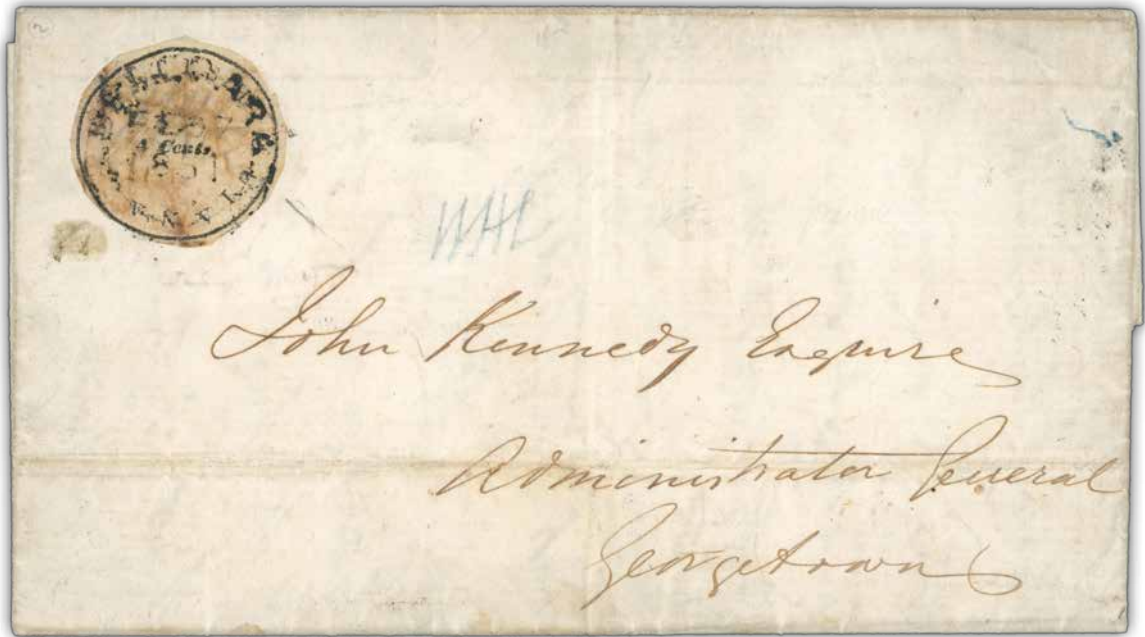 4 Cents.
1851
WHL
John Kennedy Esquire
Administrator General
Georgetown